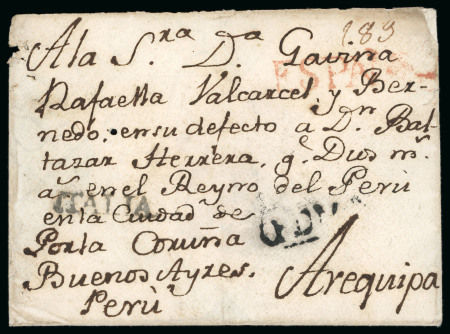 183
A la S.ra D.a Gavina
ESPAÑA
Rafaella Valcarcel, y Ber-
nedo, en su defecto a D.n Bal-
tazar Herrera, q.e Dios m.s
a.s en el Reyno del Perú
ITALIA
en la Ciudad de
Por la Coruña
Buenos Ayres. Arequipa
Perú